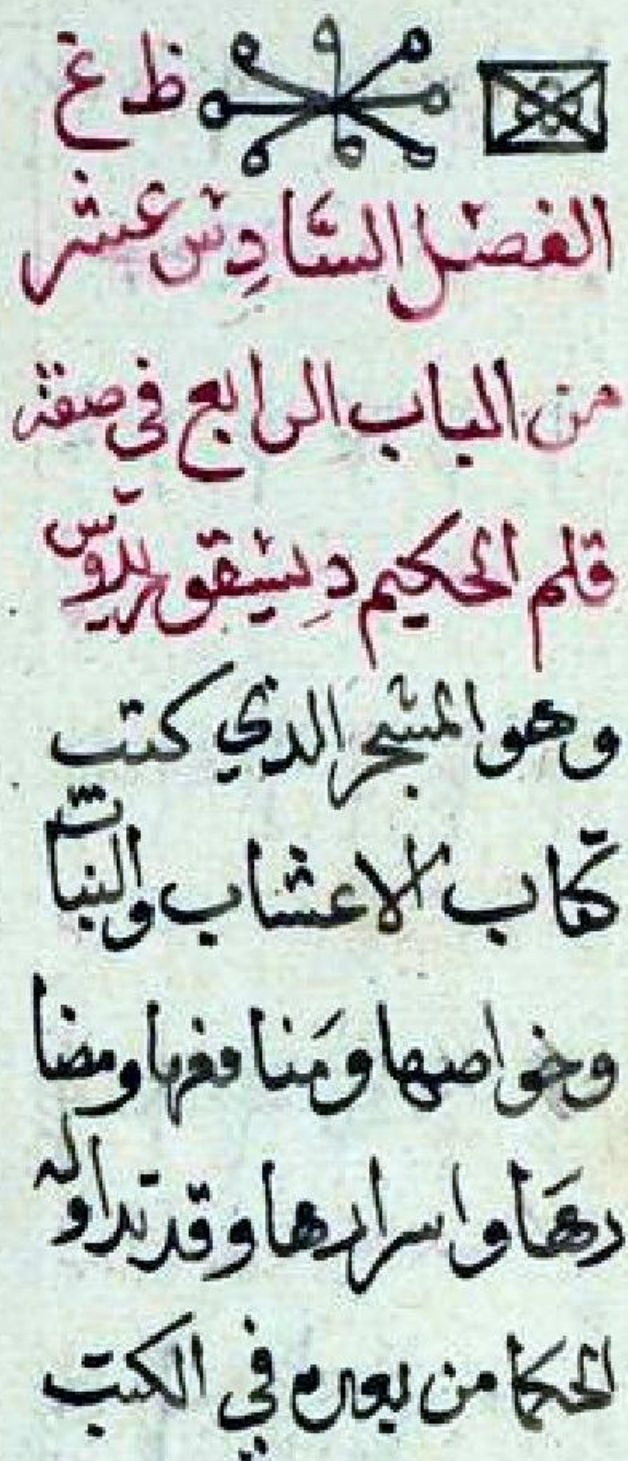 ظ غ
الفصل السادس عشر
من الباب الرابع في صفة
قلم الحكيم دِيسقوريدوس
وهو المشجر الذي كتب
كتاب الاعشاب والنبات
وخواصها ومَنافعها ومضا
رهَا واسرارها وقد تداوله
الحكما من بعده في الكتب